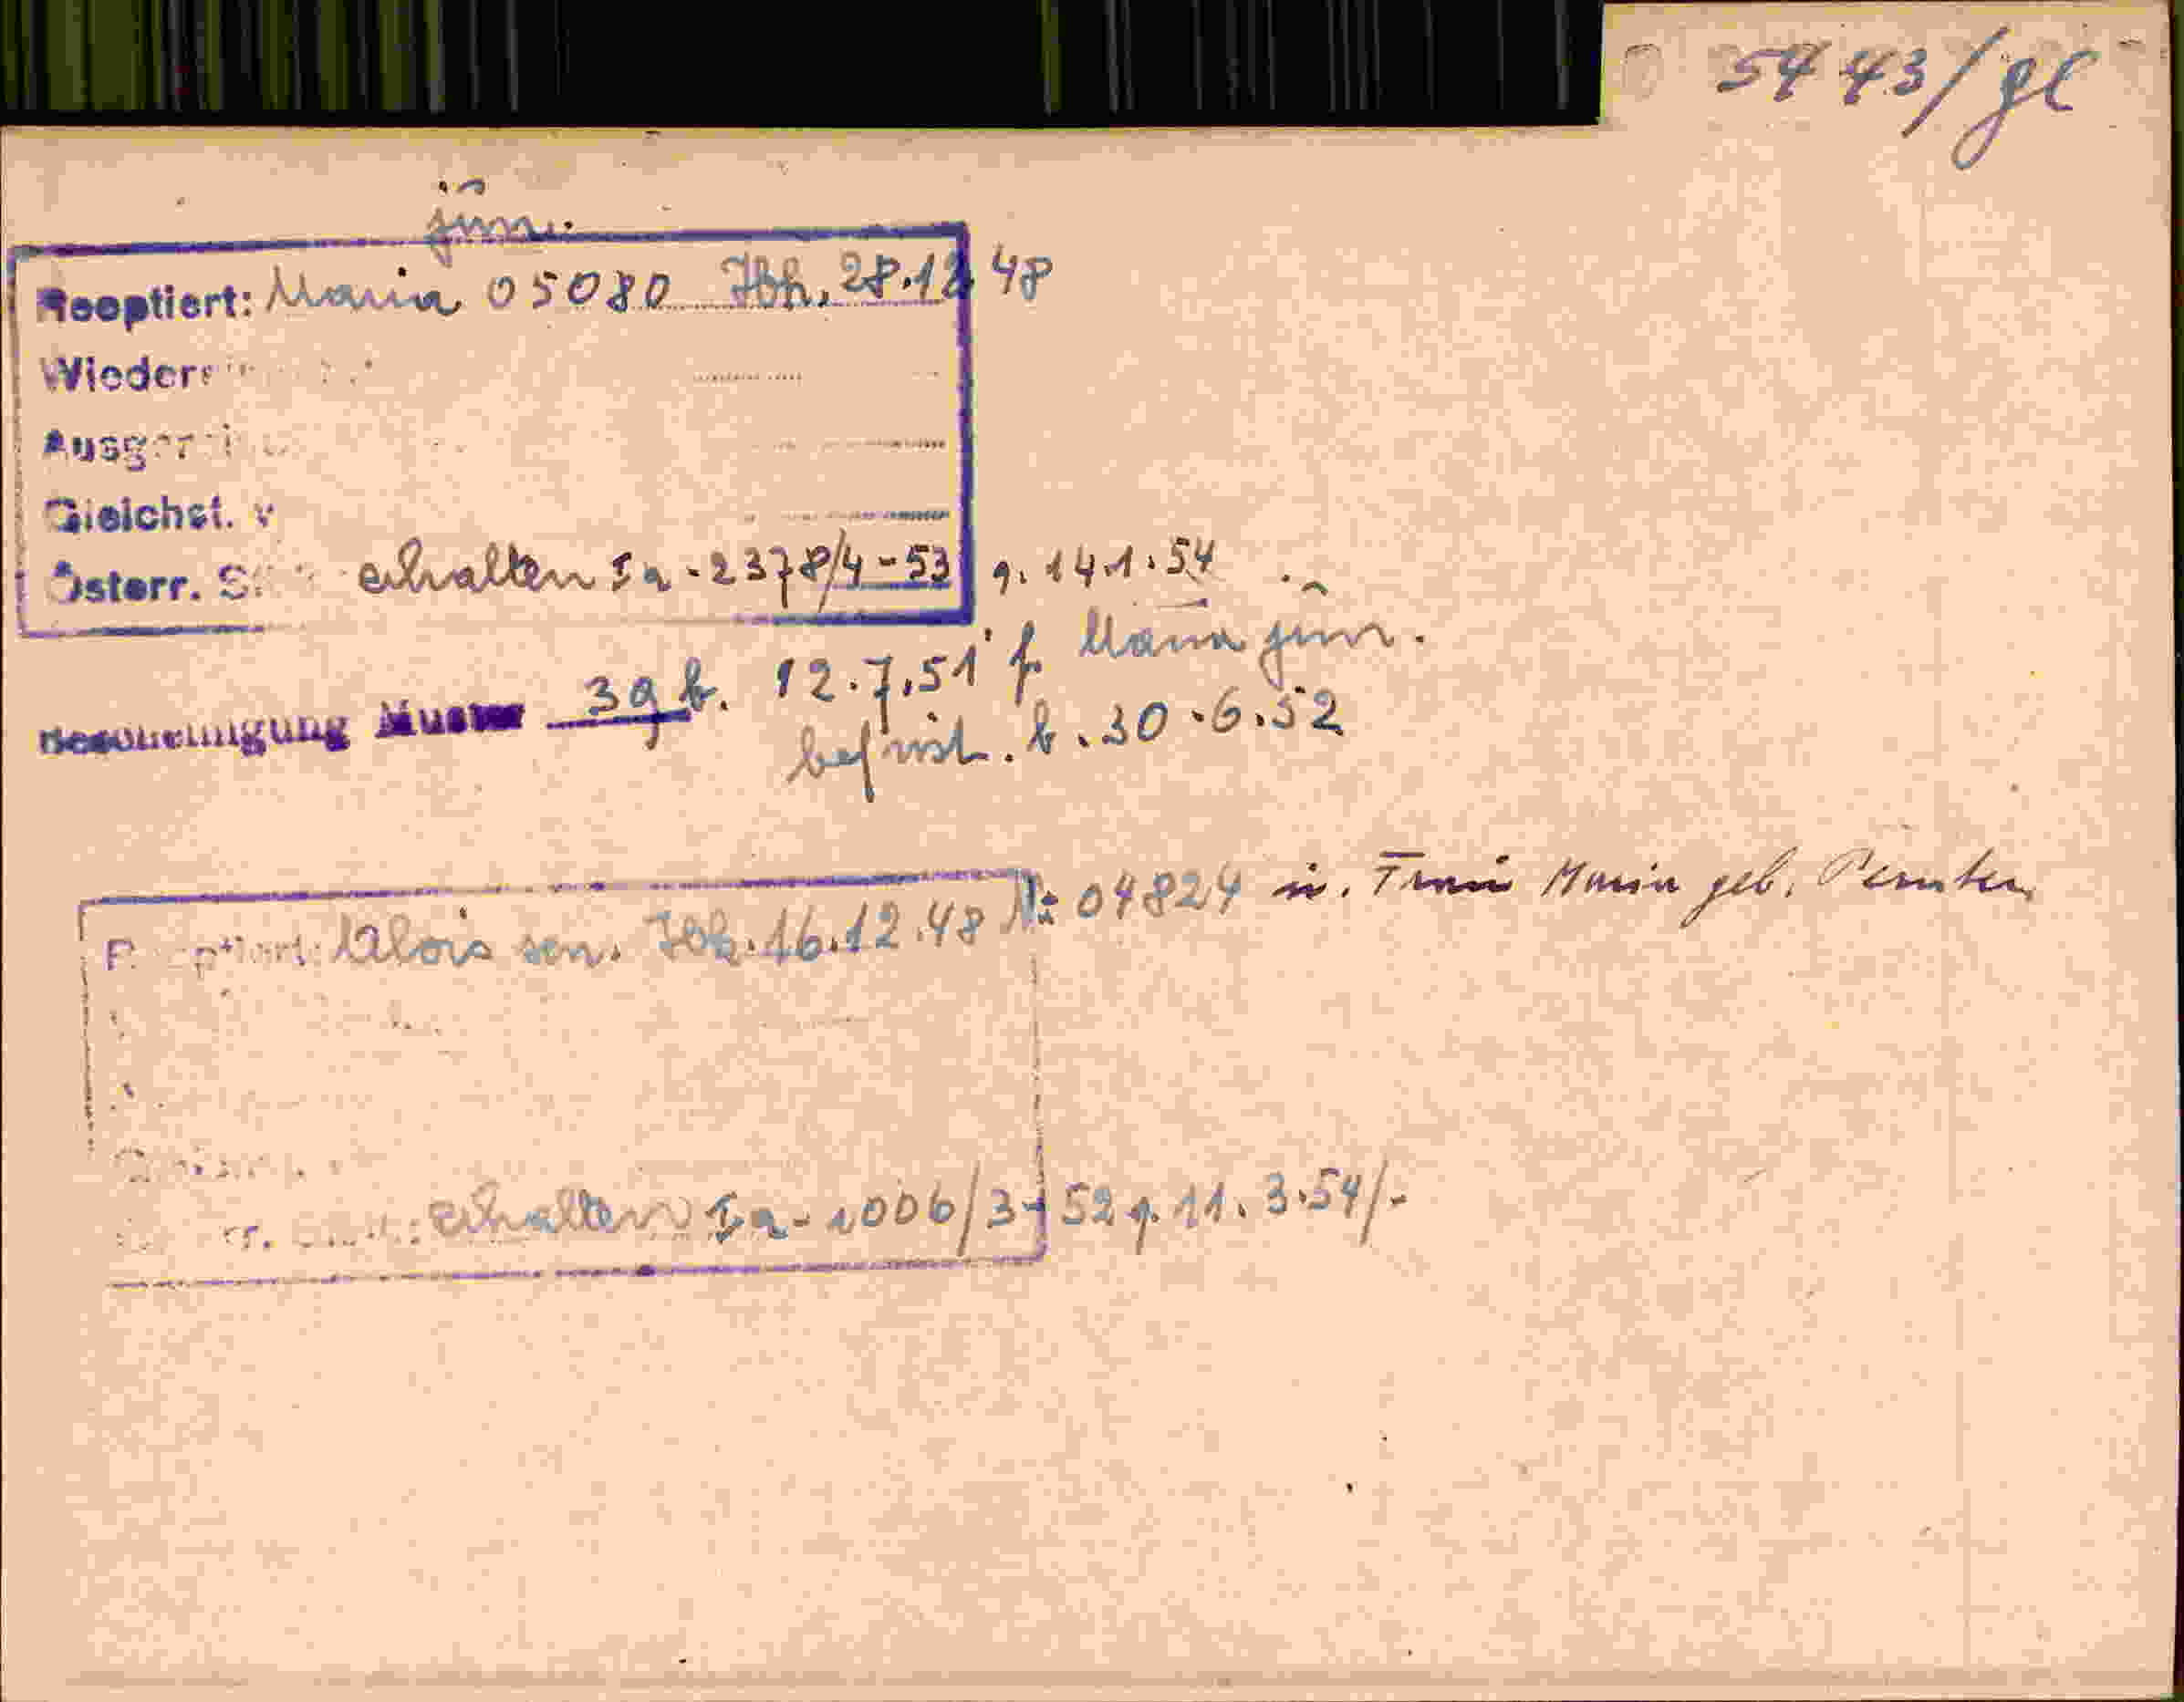 5443/gl
jun.
Reoptiert: Maria 05080 Jbk. 28.12.48
Gleichst. v
Österr. St erhalten Ia-2378/4-53 g. 14.1.54
Bescheinigung Muster 39 b. 12.7.51 f. Maria jun.
befrist. b. 30.6.52
Alois sen. Jbk. 16.12.48 Nr 04824 u. Frau Maria geb.
erhalten Ia-1006/3-52 g. 11.3.54/-